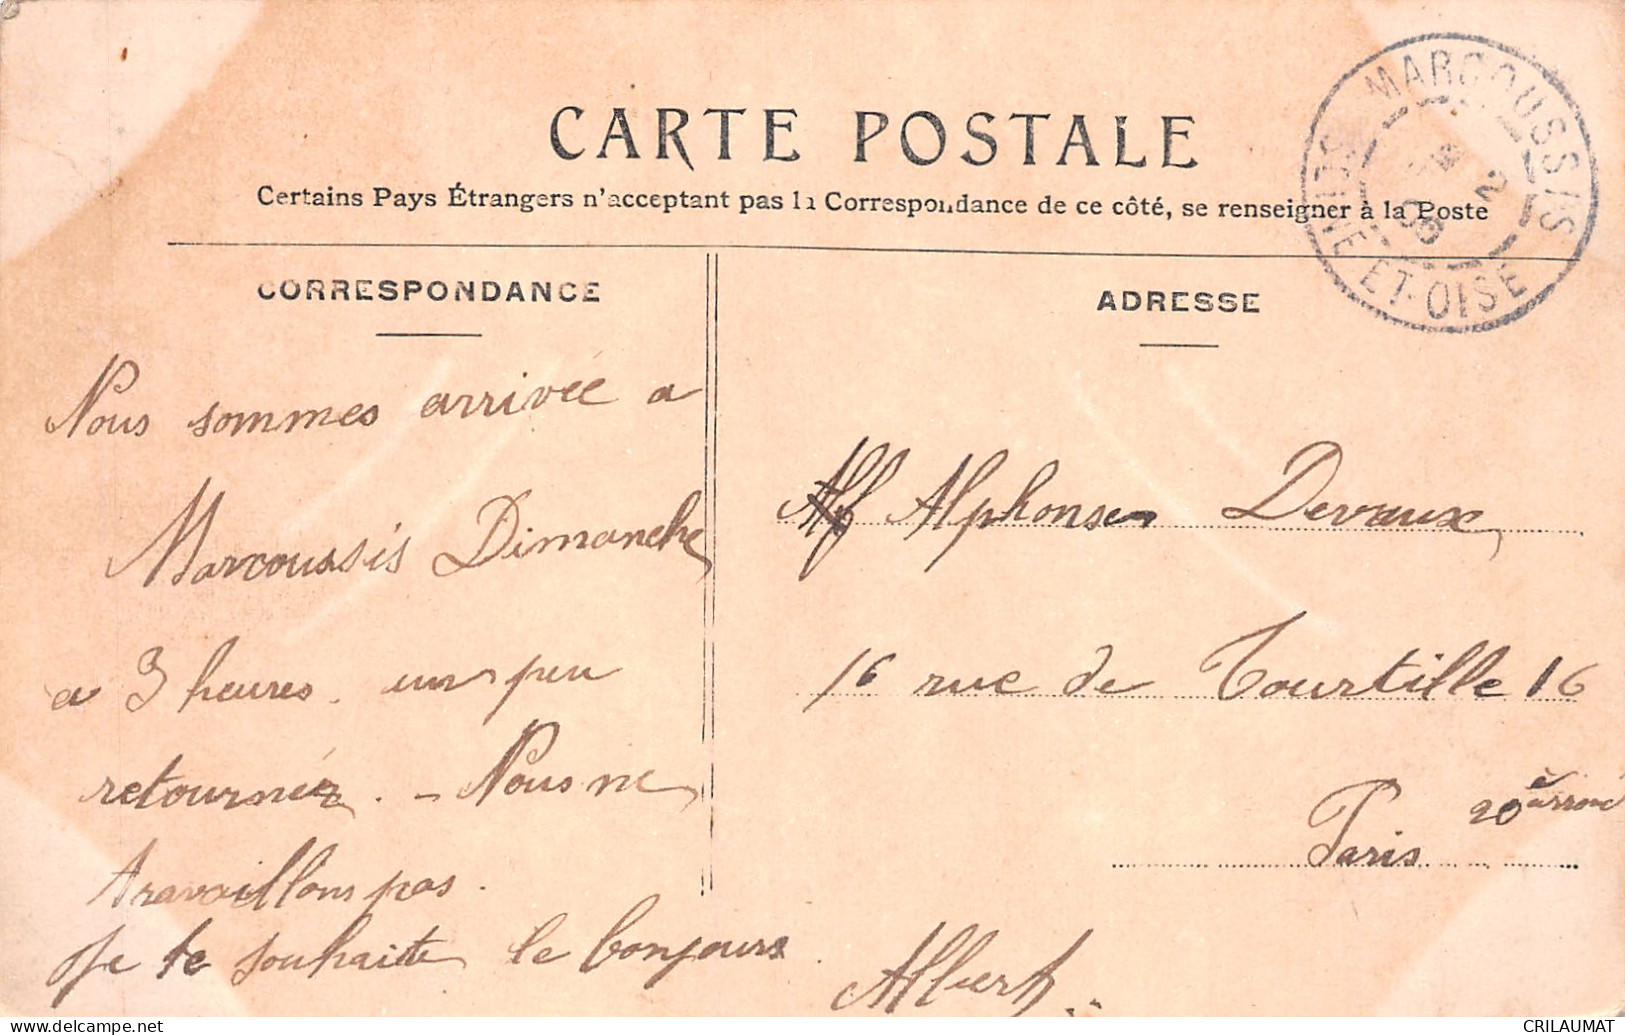 CARTE POSTALE
Certains Pays Étrangers n'acceptant pas la Correspondance de ce côté, se renseigner à la Poste
MARCOUSSIS
SEINE-ET-OISE
CORRESPONDANCE
Nous sommes arrivée a
Marcoussis Dimanche
a 3 heures. un peu
retournéz. - Nous ne
travaillons pas.
Je te souhaite le bonjours
ADRESSE
Alphonse Devaux
16 rue de Tourtille 16
20è arrond
Paris
Albert
CRILAUMAT